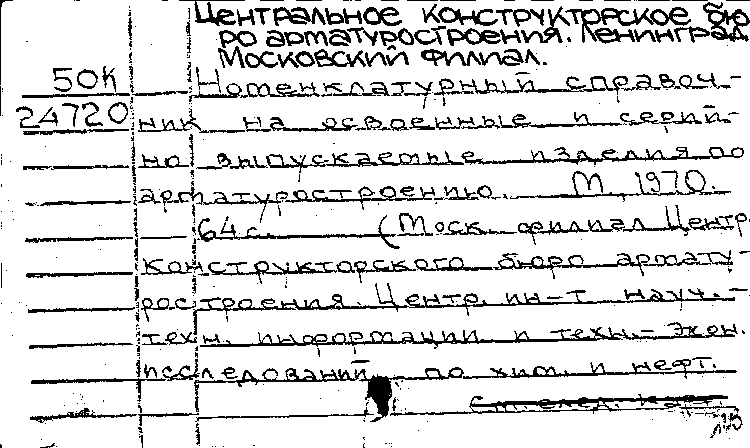 Центральное конструкторское бю-
ро арматуростроения. Ленинград.
Московский филиал.
50к Номенклатурный справоч-
24720 ник на освоенные и серий-
но выпускаемые изделия по
арматуростроению. М., 1970.
64 с. (Моск. филиал Центр.
конструкторского бюро армату-
ростроения. Центр. ин-т науч.-
техн. информации и техн.-экон.
исследований по хим. и нефт.
См. след. карт.